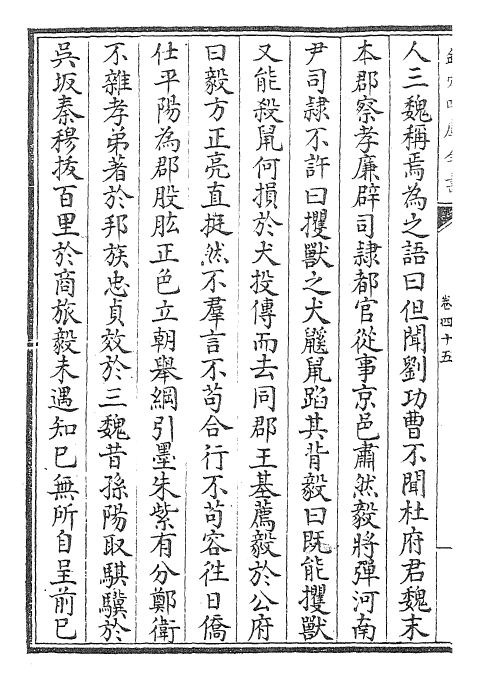 人三魏稱焉為之語曰但聞劉功曹不聞杜府君魏末
本郡察孝廉辟司隸都官從事京邑肅然毅將彈河南
尹司隸不許曰攫獸之犬鼷鼠蹈其背毅曰既能攫獸
又能殺鼠何損於犬投傳而去同郡王基薦毅於公府
曰毅方正亮直挺然不羣言不苟合行不苟容徃日僑
仕平陽為郡股肱正色立朝舉綱引墨朱紫有分鄭衛
不雜孝弟著於邦族忠貞效於三魏昔孫陽取騏驥於
吳坂秦穆拔百里於商旅毅未遇知已無所自呈前已
卷四十五